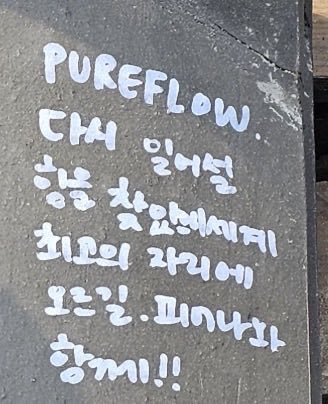 PUREFLOW.
다시 일어설
힘을 찾았으니 세계
최고의 자리에
오르길. 피어나와
함께!!